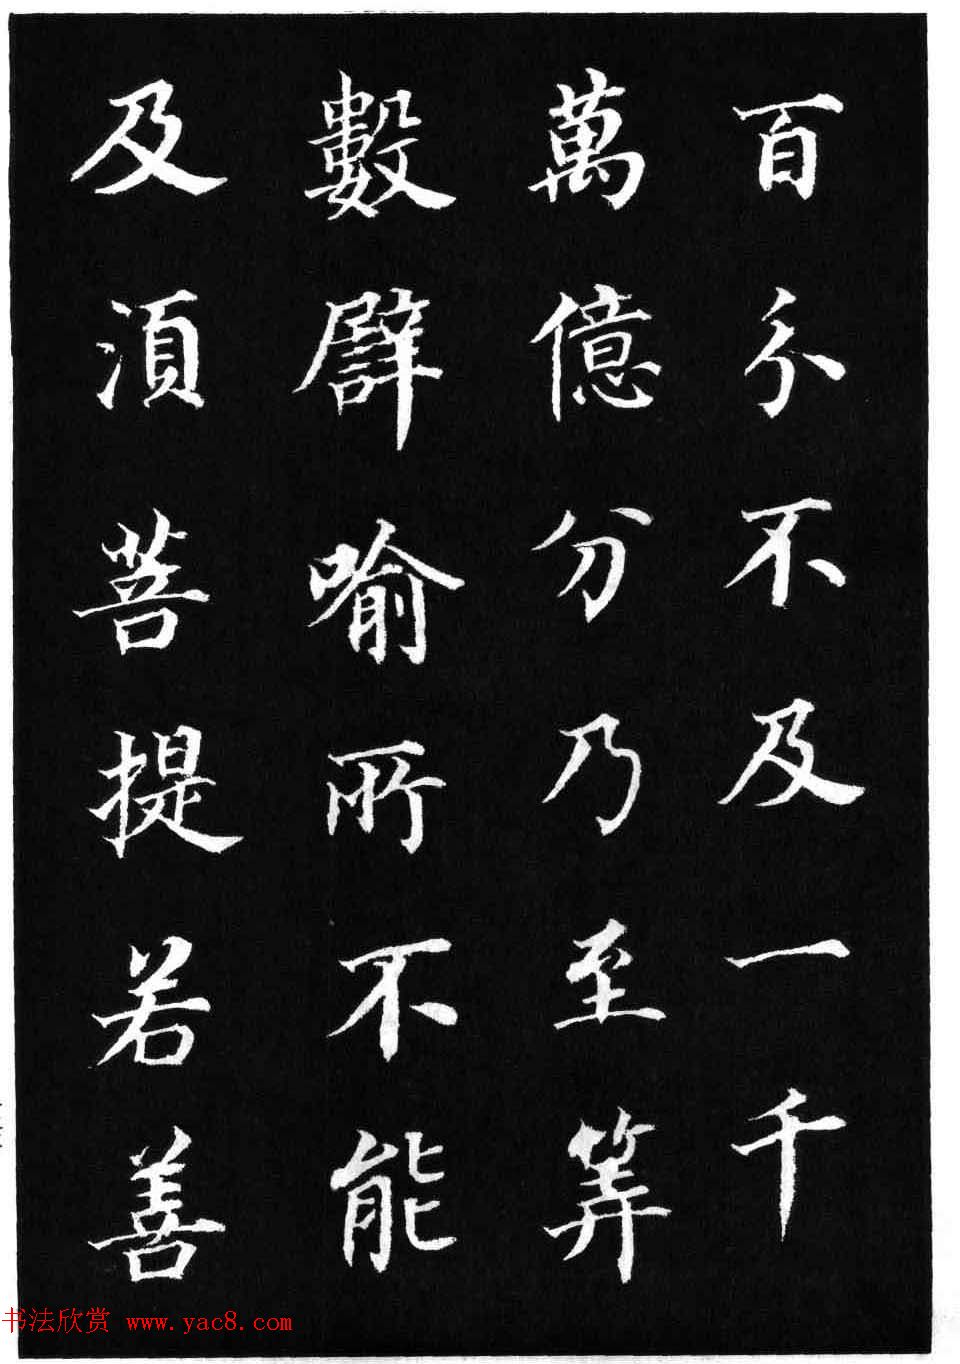 百分不及一千
萬億分乃至筭
數譬喻所不能
及湏菩提若善
书法欣赏 www.yac8.com